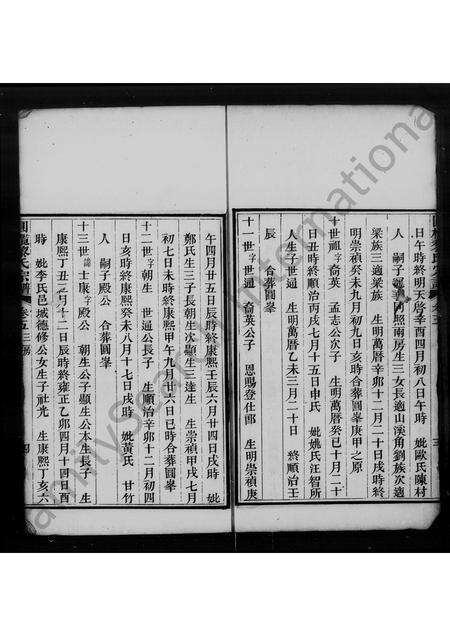 日午時終明天啓辛酉四月初八日午時 妣歐氏陳村
人 嗣子 兩房生三女長適山溪角劉族次適
梁族三適梁族 生明萬曆辛卯十二月二十日戌時終
明崇禎癸未九月初九日亥時合葬圓峯庚甲之原
十世祖字裔英 孟志公次子 生明萬曆癸巳十月二十
日丑時終順治丙戌七月十五日申氏 妣姚氏汪智所
人生子世通 生明萬曆乙未三月二十日 終順治壬
辰 合葬圓峯
十一世字世通 裔英公子 恩賜登仕郎 生明崇禎庚
午四月廿五日辰時終康熙壬辰六月廿四日戌時 妣
鄭氏生三子長朝生次顯生三達生 生崇禎甲戌七月
初七日未時終康熙甲午九月十六日巳時合葬圓峯
十二世字朝生 世通公長子 生順治辛卯十二月初四
日亥時終康熙癸未八月十七日戌時 妣黃氏 甘竹
人 嗣子殿公 合葬圓峯
十三世諱士康字殿公 朝生公子顯生公本生長子 生
康熙丁丑二月十二日辰時終雍正乙卯四月十四日酉
時 妣李氏邑城德修公女生子社光 生康熙丁亥六
宗譜 卷五三房
FamilySearch International